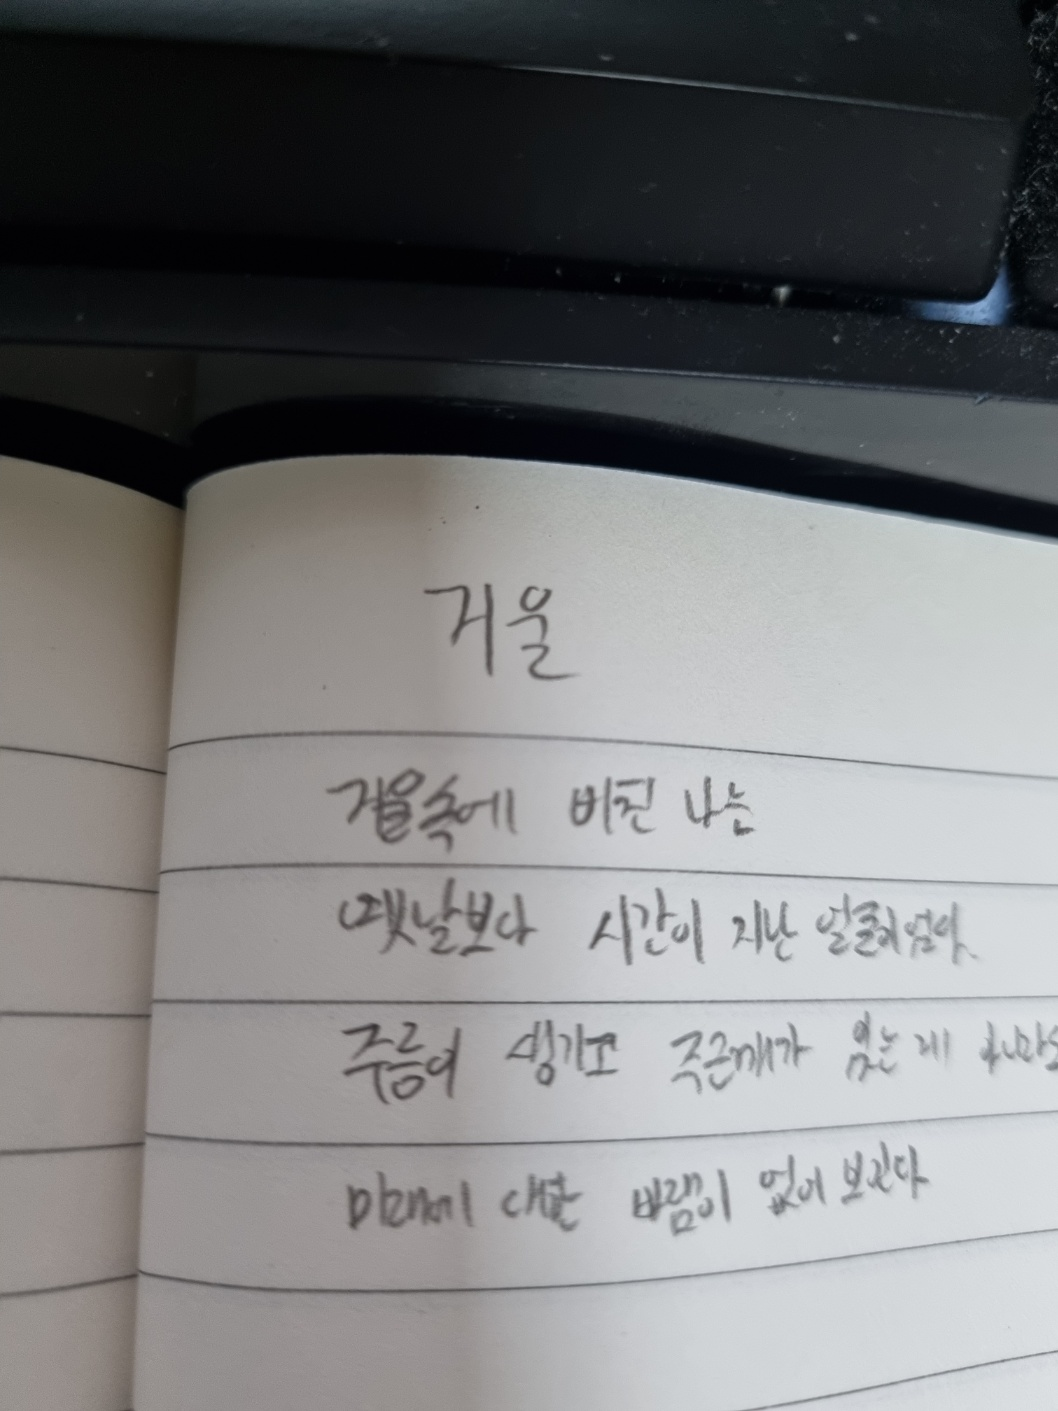 거울
거울속에 비친 나는
옛날보다 시간이 지난 얼굴이였다.
주름이 생기고 주근깨가 있는 내
미래에 대한 바램이 없어 보인다